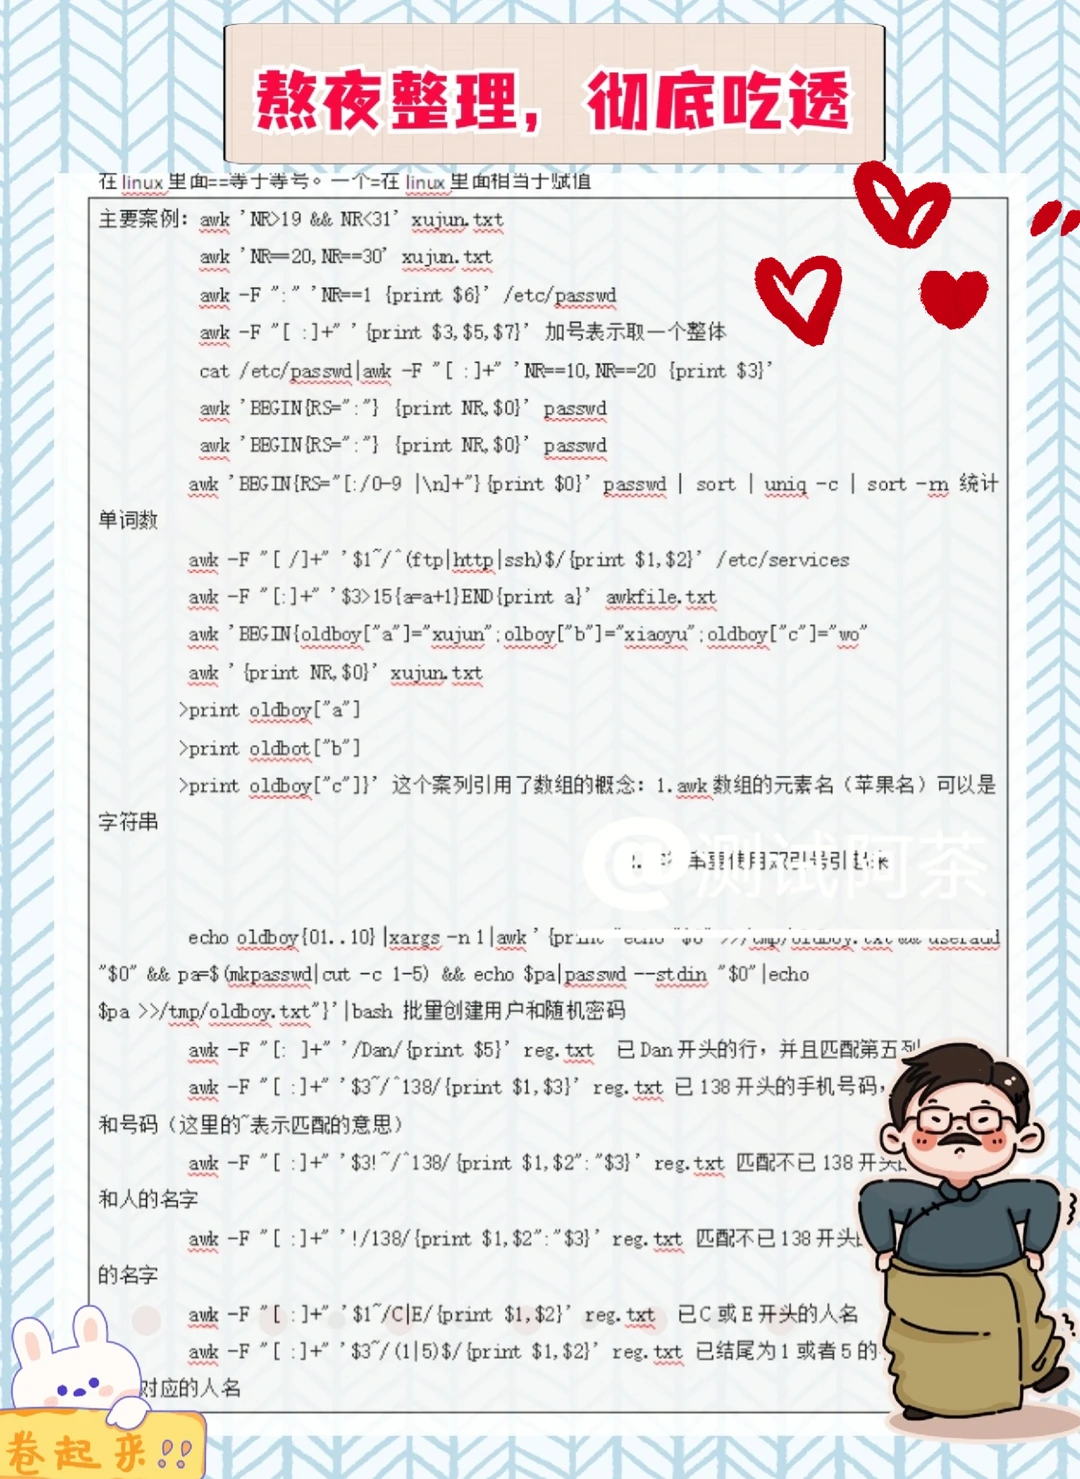 熬夜整理，彻底吃透
在linux里面==等于等号。一个=在linux里面相当于赋值
主要案例：awk 'NR>19 && NR<31' xujun.txt
awk 'NR==20,NR==30' xujun.txt
awk -F ":" 'NR==1 {print $6}' /etc/passwd
awk -F "[ :]+" '{print $3,$5,$7}' 加号表示取一个整体
cat /etc/passwd|awk -F "[ :]+" 'NR==10,NR==20 {print $3}'
awk 'BEGIN{RS=":"} {print NR,$0}' passwd
awk 'BEGIN{RS=":"} {print NR,$0}' passwd
awk 'BEGIN{RS="[:/0-9 |\n]+"}{print $0}' passwd | sort | uniq -c | sort -rn 统计
单词数
awk -F "[ /]+" '$1~/^(ftp|http|ssh)$/{print $1,$2}' /etc/services
awk -F "[:]+" '$3>15{a=a+1}END{print a}' awkfile.txt
awk 'BEGIN{oldboy["a"]="xujun";olboy["b"]="xiaoyu";oldboy["c"]="wo"
awk '{print NR,$0}' xujun.txt
>print oldboy["a"]
>print oldbot["b"]
>print oldboy["c"]}' 这个案列引用了数组的概念：1.awk数组的元素名（苹果名）可以是
字符串
使用双引号引起来
@测试阿茶
echo oldboy{01..10}|xargs -n 1|awk '{print "echo "$0" >>/tmp/oldboy.txt && useradd
"$0" && pa=$(mkpasswd|cut -c 1-5) && echo $pa|passwd --stdin "$0"|echo
$pa >>/tmp/oldboy.txt"}'|bash 批量创建用户和随机密码
awk -F "[: ]+" '/Dan/{print $5}' reg.txt 已Dan开头的行，并且匹配第五列
awk -F "[ :]+" '$3~/^138/{print $1,$3}' reg.txt 已138开头的手机号码，
和号码（这里的~表示匹配的意思）
awk -F "[ :]+" '$3!~/^138/{print $1,$2":"$3}' reg.txt 匹配不已138开头
和人的名字
awk -F "[ :]+" '!/138/{print $1,$2":"$3}' reg.txt 匹配不已138开头
的名字
awk -F "[ :]+" '$1~/C|E/{print $1,$2}' reg.txt 已C或E开头的人名
awk -F "[ :]+" '$3~/(1|5)$/{print $1,$2}' reg.txt 已结尾为1或者5的
对应的人名
卷起来!!